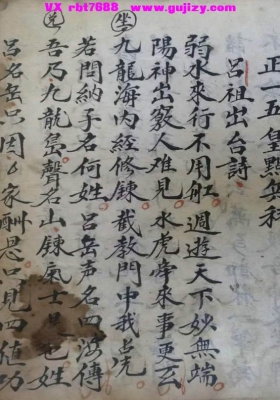 VX rbt7688 www.gujizy.com
正一五
呂祖出台詩
弱水來行不用舡 週遊天下妙無端
陽神出竅人難見 水虎牽來事更玄
坐
九龍海內經修鍊 截教門中我占先
若問納子名何姓 呂岳声名四海傳
吾乃九龍島聲名山鍊氣士是也姓
呂名岳只因 家酬恩只見四值功